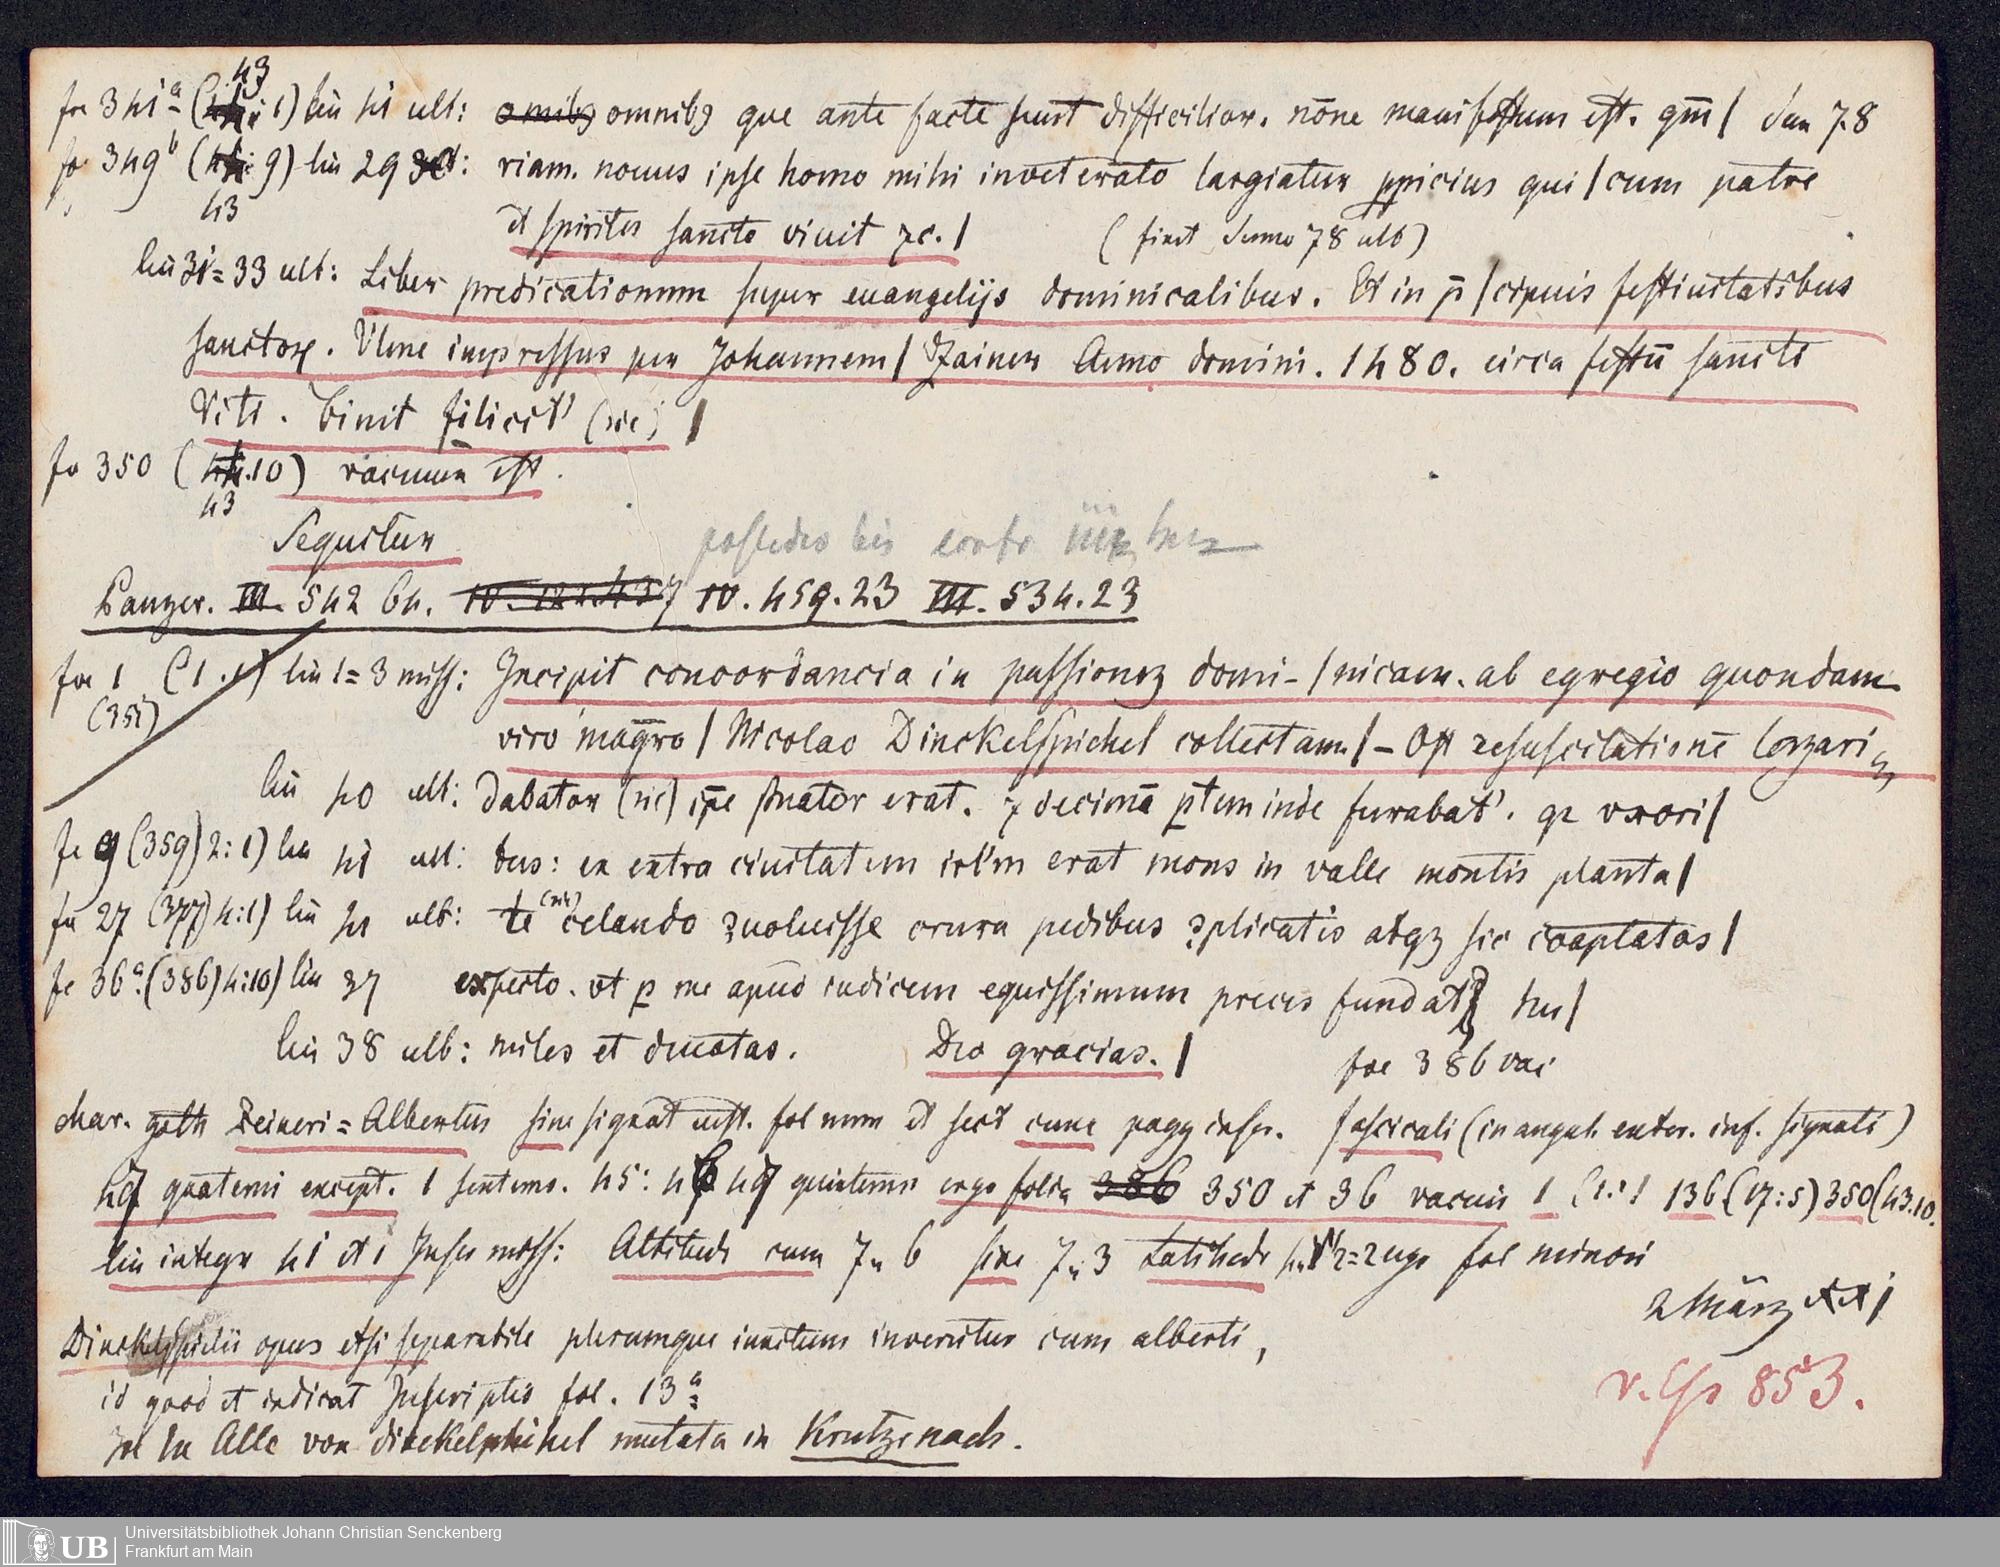 fo 341a (43 : 1) lin 41 ult: omnibꝫ que ante facte sunt difficilior. nōne manifestum est. qm̄ |
fo 349b (43 : 9) lin 29 : riam. nouus ipse homo mihi inveterato largiatur ꝓpicius qui | cum patre
et spiritus sancto viuit ⁊c. | ( finit Sermo 78 ult)
lin 31=33 ult: Liber predicationum super euangelijs dominicalibus. Et in p̄ | cipuis festiuitatibus
sanctoꝝ. Ulme impressus per Johannem | Zainer Anno domini. 1480. circa festū sancti
Viti. finit filicit' (sic) |
fo 350 (43.10) vacuum est.
Sequitur
Panzer. III. 542 64. IV. 459.23 III. 534.23
fo 1 (1 . 1) lin 1=3 miss: Incipit concordancia in passionez domi- | nicam. ab egregio quondam
(351)
viro magr̄o | Nicolao Dinckelspichel collectam. | - Opt resuscitationē lazari
lin 40 ult: dabator (sic) ip̄e erat. ⁊ decimā p̱tem inde furabat'. qz vxori |
fo 9 (359) 2:1) lin 41 ult: dus: en extra ciuitatem irl'm erat mons in valle montis planta |
fo 27 (377) 4:1) lin 41 ult: te (sic) celando ꝯuoluisse crura pedibus ꝯplicatis atqz sic coaptatas |
fo 36a (386) 4:10) lin 37 experto. vt p me apud iudicem equissimum preces fundat
lin 38 ult: miles et deuotas. Deo gracias. | foe 386 vac
char. goth Zeineri = Albertus sine signat cust. fol num et sect cum pagg inscr. fascicali (in angul. exter. inf. signati)
quaterni except. 1 sexterno. 45: quinterni ergo folia 350 et 36 vacuis 1 (1:1 136 (17:5) 350 (43.10.
lin integr 41 et 1 Inscr miss: Altitudo cum 7" 6 sine 7" 3 Latitudo fol minori
2 März
Dinckelspichlii opus etsi separabile plerumque iunctum invenitur cum alberti,
id quod et indicat Inscriptio fol. 13a
In Alle von dinckelspichel mutata in Kreutzenach.
853.
Universitätsbibliothek Johann Christian Senckenberg
Frankfurt am Main
UB